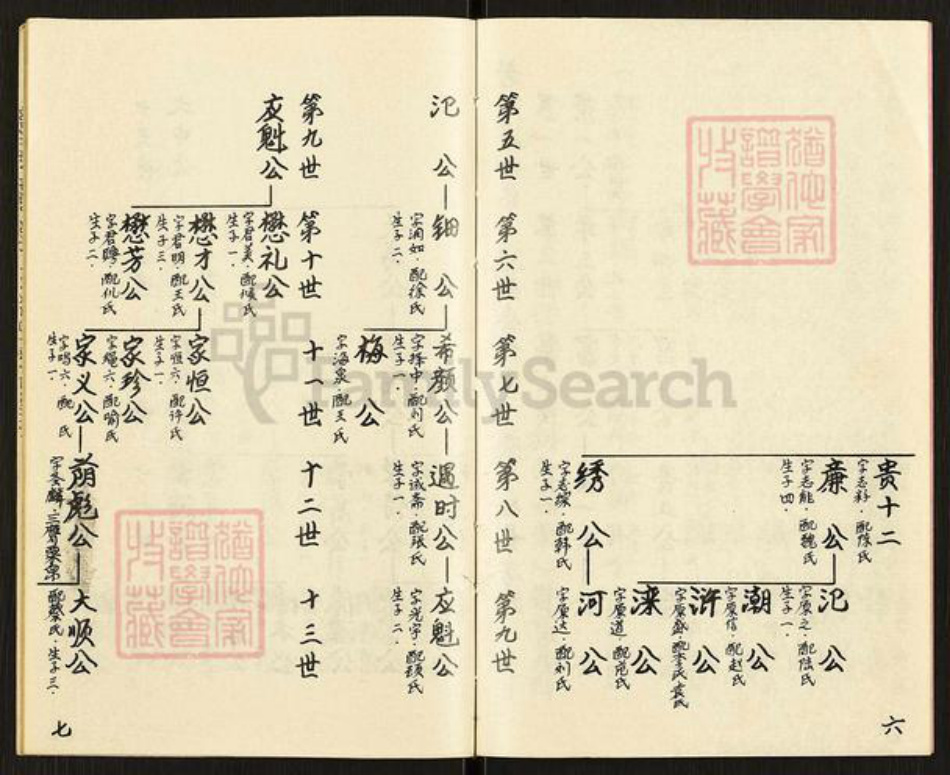 贵十二
字志彩·配陈氏
廉公
字志能·配魏氏
生子四·
汜公
字原之·配陈氏
生子一·
潮公
字原信·配赵氏
浒公
字原盛·配李氏袁氏
滦公
字原道·配范氏
绣公
字志琛·配韩氏
生子一·
河公
字原达·配刘氏
六
第五世
第六世
第七世
第八世
第九世
汜公
钿公
字润如·配徐氏
生子二·
希颜公
字择中·配刘氏
生子一·
过时公
字诚斋·配张氏
生子一·
应魁公
字光宇·配顾氏
生子二·
梅公
字海泉·配王氏
第九世
第十世
十一世
十二世
十三世
应魁公
懋礼公
字君美·配倾氏
生子一·
懋才公
字君明·配王氏
生子三·
懋芳公
字君聘·配仇氏
生子二·
家恒公
字恒六·配许氏
生子一·
家珍公
字绳六·配喻氏
家义公
字鸣六·配 氏
生子一·
荫彪公
字圣麟·
大顺公
配蔡氏·生子三·
七
FamilySearch